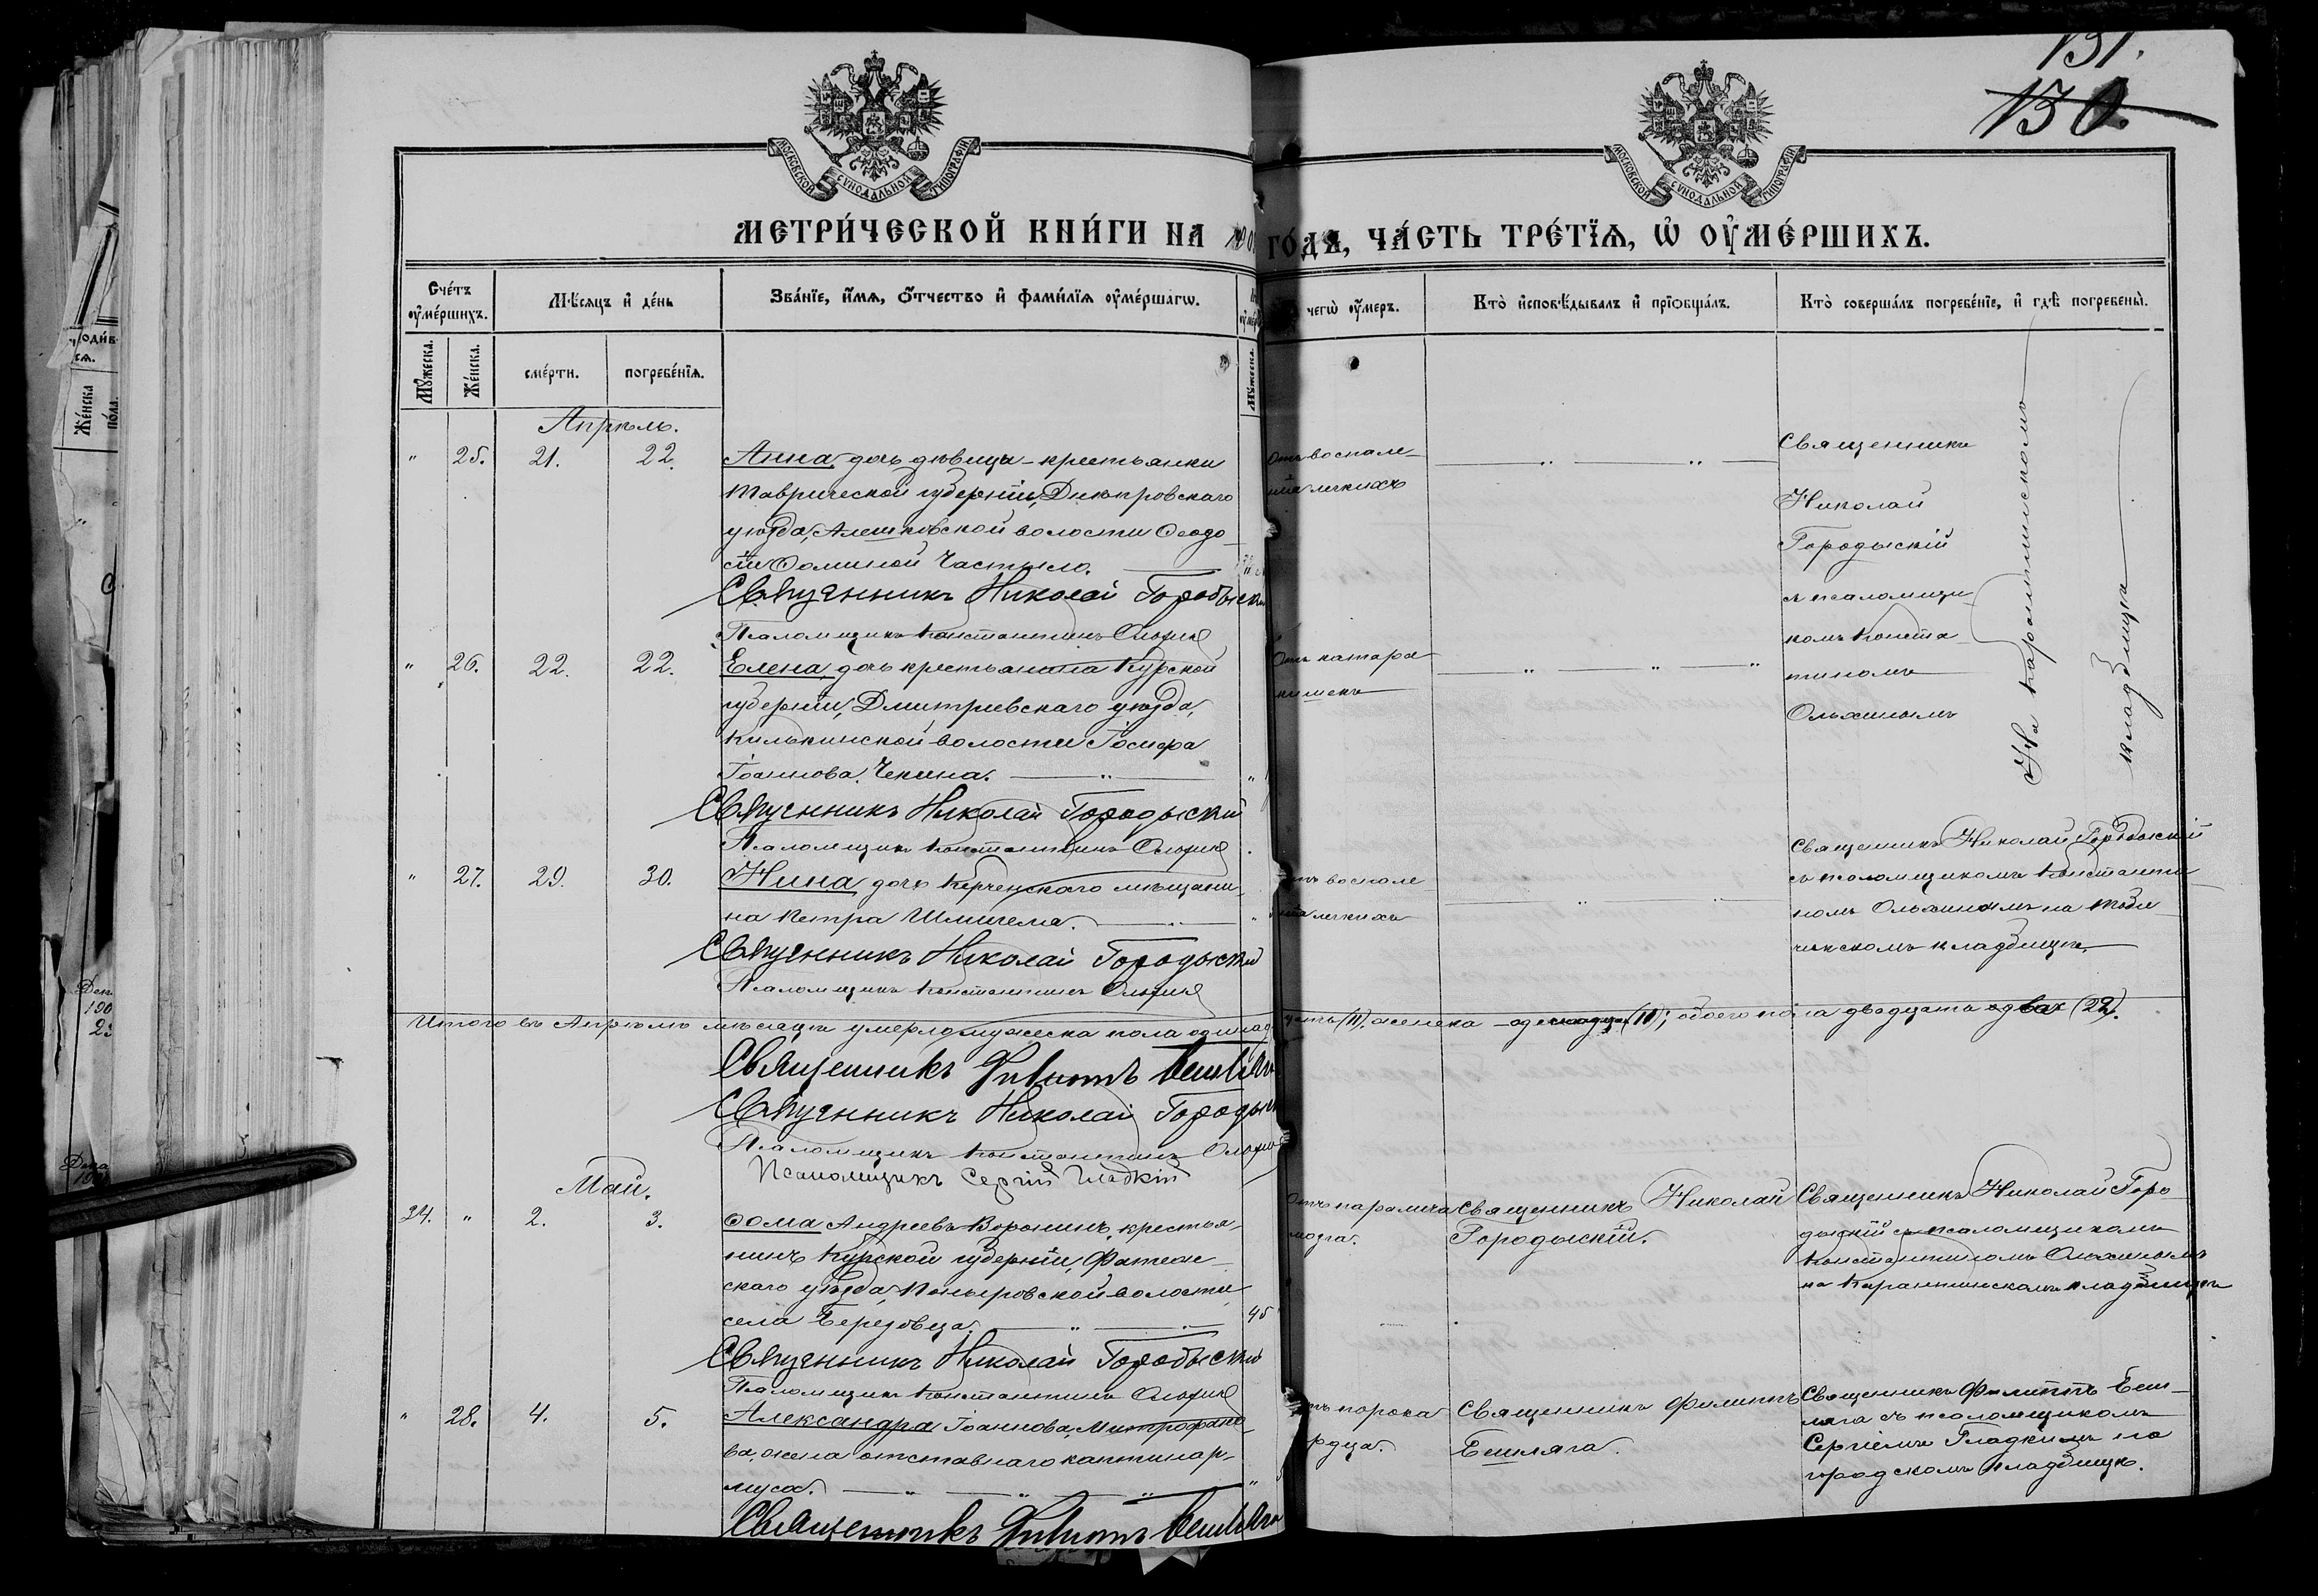 131.
130.
МОСКОВСКОЙ СѴНОДАЛЬНОЙ ТИПОГРАФІИ
МОСКОВСКОЙ СѴНОДАЛЬНОЙ ТИПОГРАФІИ
МЕТРИ́ЧЕСКОЙ КНИ́ГИ НА
ГО́ДЪ, ЧА́СТЬ ТРЕ́ТЇѦ, Ѡ҆ ОУ҆МЕ́РШИХЪ.
Счетъ оумершихъ.
Мѣсяцъ и день
Званїе, имя, отчество и фамилїя оумершагѡ.
чегѡ оумеръ.
Кто исповѣдывалъ и прїобщалъ.
Кто совершалъ погребенїе, и гдѣ погребены.
Мужеска.
Женска.
смерти.
погребенїя.
Мужеска.
Апрѣль.
" 25. 21. 22.
Анна, дочь дѣвицы-крестьянки
Таврической губерніи, Днѣпровскаго
уѣзда, Алешковской волости Ѳеодо-
сіи Ѳоминой Частыло.
Священникъ Николай Городыскій
Псаломщикъ Константинъ Ольхинъ
отъ воспале-
нія легкихъ
Священникъ
Николай
Городыскій
съ псаломщи-
комъ Конста-
тиномъ
Ольхинымъ
На карантинскомъ
кладбищѣ
" 26. 22. 22.
Елена, дочь крестьянина Курской
губерніи, Дмитріевскаго уѣзда,
Килькинской волости Іосифа
Іоаннова Чекина.
Священникъ Николай Городыскій
Псаломщикъ Константинъ Ольхинъ
Отъ катара
кишекъ
" 27. 29. 30.
Нина, дочь Керченскаго мѣщани-
на Петра
Священникъ Николай Городыскій
Псаломщикъ Константинъ Ольхинъ
отъ воспале
нія легкихъ
Священникъ Николай Городыскій
съ псаломщикомъ Константи
номъ Ольхинымъ на
кладбищѣ.
Итого въ Апрѣлѣ мѣсяцѣ умерло мужеска пола одинад
цать (11), женска (11); обоего пола двадцать два (22).
Священникъ Филиппъ Бешляга
Священникъ Николай Городыскій
Псаломщикъ Константинъ Ольхинъ
Псаломщикъ Сергій Гладкій
Май.
24. " 2. 3.
Ѳома Андреевъ Воронинъ, крестья-
нинъ Курской губерніи, Фатеж-
скаго уѣзда, Поныровской волости
села Березовца. 45
Священникъ Николай Городыскій
Псаломщикъ Константинъ Ольхинъ
отъ паралича
мозга.
Священникъ Николай
Городыскій.
Священникъ Николай Горо
дыскій съ псаломщикомъ
Константиномъ Ольхинымъ
на Карантинскомъ кладбищѣ
" 28. 4. 5.
Александра Іоаннова Митрофано-
ва, жена отставнаго каптинар-
муса.
Священникъ Филиппъ Бешляга
отъ порока
сердца.
Священникъ Филиппъ
Бешляга.
Священникъ Филиппъ Беш-
ляга съ псаломщикомъ
Сергіемъ Гладкимъ на
городскомъ кладбищѣ.